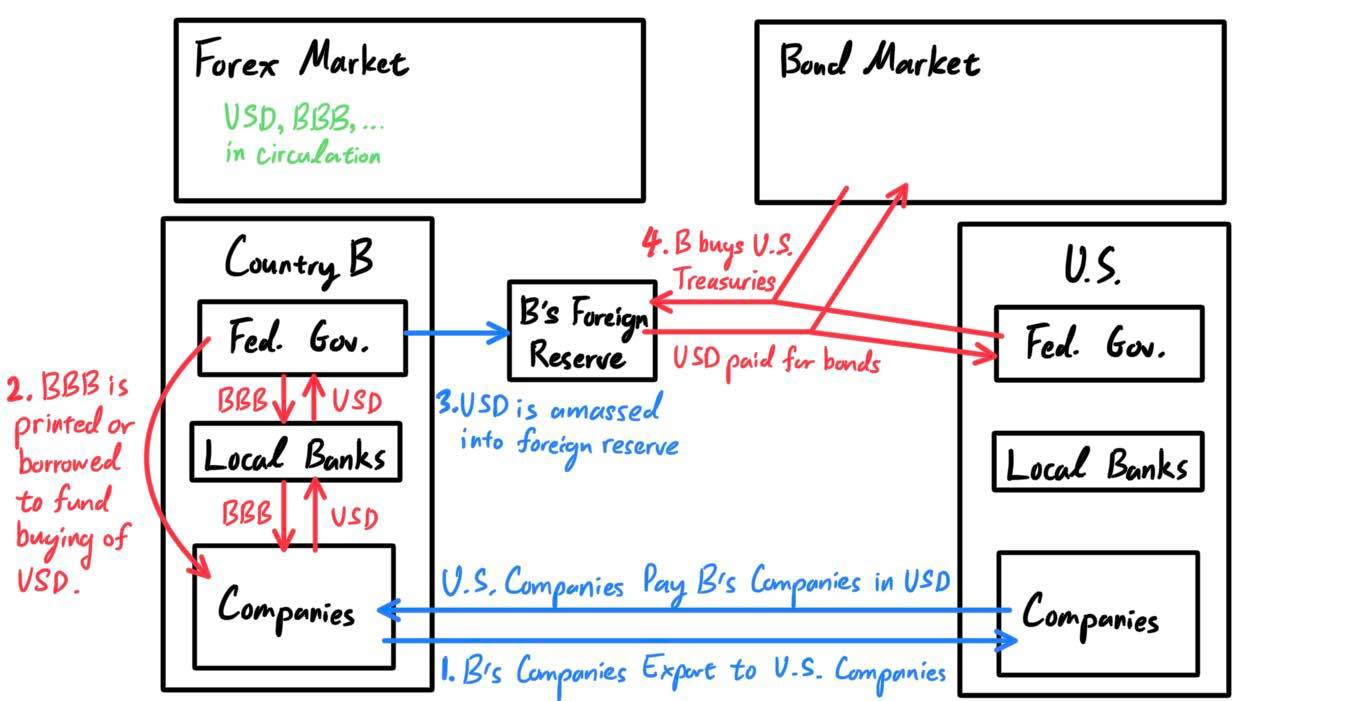 Forex Market
USD, BBB, ...
in circulation
Bond Market
Country B
Fed. Gov.
BBB
USD
Local Banks
BBB
USD
Companies
2. BBB is
printed or
borrowed
to fund
buying of
USD.
B's Foreign
Reserve
3. USD is amassed
into foreign reserve
4. B buys U.S.
Treasuries
USD paid for bonds
U.S.
Fed. Gov.
Local Banks
Companies
U.S. Companies Pay B's Companies in USD
1. B's Companies Export to U.S. Companies